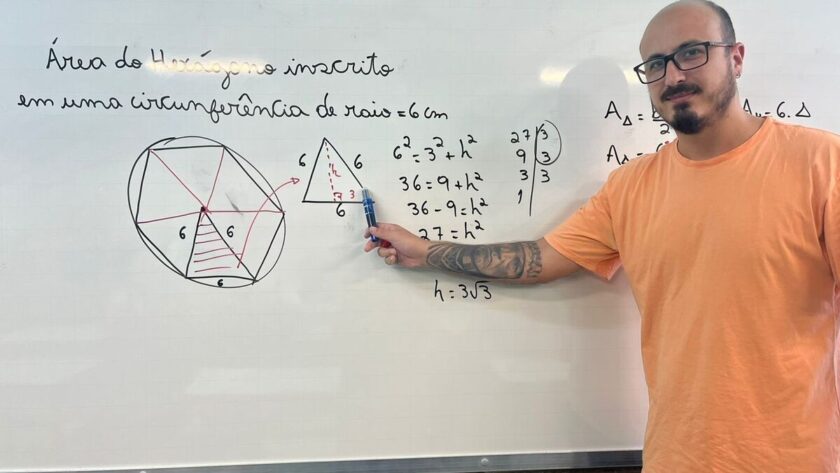 Área do Hexágono inscrito
em uma circunferência de raio = 6 cm
6 6 h 3 6
6 6 6
6² = 3² + h²
36 = 9 + h²
36 - 9 = h²
27 = h²
h = 3√3
27 | 3
9 | 3
3 | 3
1
A△ =
2
A△
= 6 . △